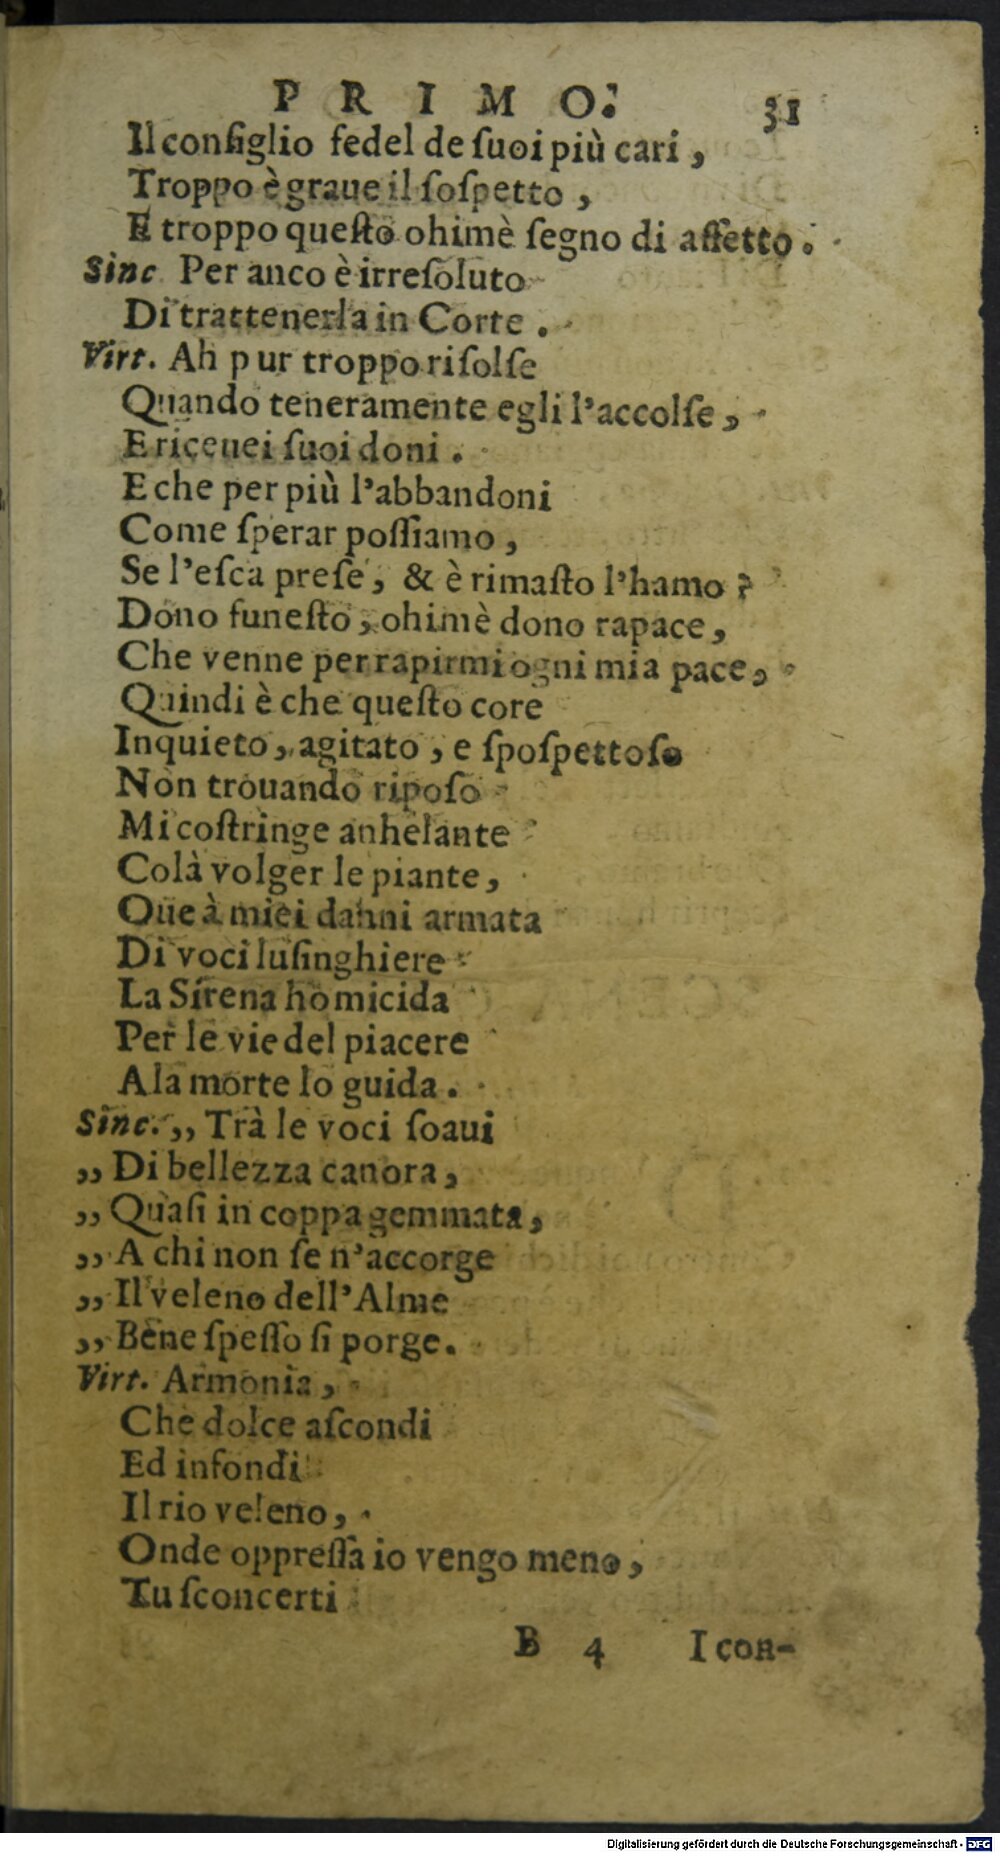 PRIMO. 31
Il conſiglio fedel de ſuoi più cari ,
Troppo è graue il ſoſpetto ,
E troppo queſto ohimè ſegno di affetto .
Sinc Per anco è irreſoluto
Di trattenerla in Corte .
Virt. Ah pur troppo riſolſe
Quando teneramente egli l'accolſe ,
E riceuei ſuoi doni .
E che per più l'abbandoni
Come ſperar poſſiamo ,
Se l'eſca preſe , & è rimaſto l'hamo ?
Dono funeſto , ohimè dono rapace ,
Che venne per rapirmi ogni mia pace ,
Quindi è che queſto core
Inquieto , agitato , e ſpoſpettoſo
Non trouando ripoſo
Mi coſtringe anhelante
Colà volger le piante ,
Oue à miei danni armata
Di voci luſinghiere
La Sirena homicida
Per le vie del piacere
A la morte lo guida .
Sinc. ,, Trà le voci ſoaui
,, Di bellezza canora ,
,, Quaſi in coppa gemmata ,
,, A chi non ſe n'accorge
,, Il veleno dell'Alme
,, Bene ſpeſſo ſi porge .
Virt. Armonia ,
Che dolce aſcondi
Ed infondi
Il rio veleno ,
Onde oppreſſa io vengo meno ,
Tu ſconcerti
B 4 I con-
Digitalisierung gefördert durch die Deutsche Forschungsgemeinschaft - DFG